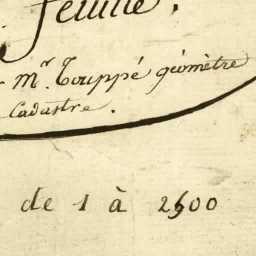 feuille.
Mr. Touppé géomètre
Cadastre.
de 1 à 2500